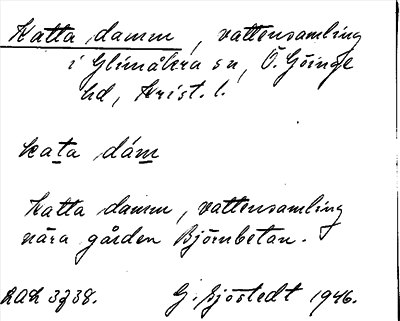 Katta damm, vattensamling
i Glimåkra sn, Ö. Göinge
hd, Krist. l.
kata dám
Katta damm, vattensamling
nära gården Björnbetan.
G. Sjöstedt 1946.